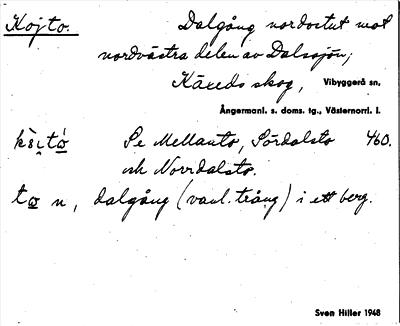 Kojto.
Dalgång nordostut mot
nordvästra delen av Dalssjön;
Käxeds skog, Vibyggerå sn.
Ångermanl. s. doms. tg., Västernorrl. l.
Se Mellanto, Sördalsto 460.
och Norrdalsto.
to n, dalgång (vanl. trång) i ett berg.
Sven Hiller 1948